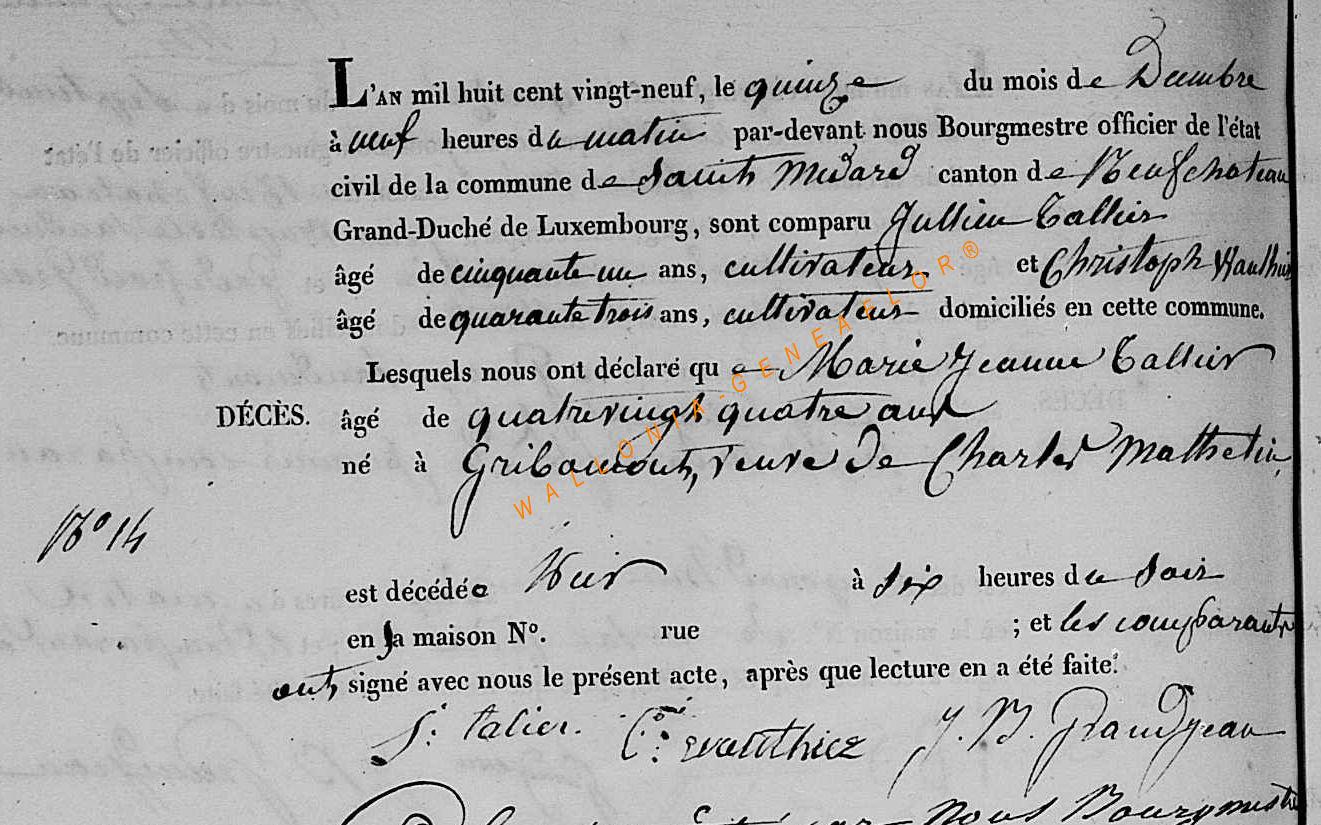 L'AN mil huit cent vingt-neuf, le quinze du mois de Decembre
à neuf heures du matin par-devant nous Bourgmestre officier de l'état
civil de la commune de Saint Medard canton de Neufchateau
Grand-Duché de Luxembourg, sont comparu Jullien Tallier
âgé de cinquante un ans, cultivateur et Christoph
âgé de quarante trois ans, cultivateur domiciliés en cette commune.
Lesquels nous ont déclaré que Marie Jeanne Tallier
DÉCÈS. âgé de quatrevingt quatre ans
né à Gribaumont, veuve de Charles Mathelin
Nº 14
est décédée hier à six heures du soir
en sa maison Nº. rue ; et les comparants
ont signé avec nous le présent acte, après que lecture en a été faite.
J. B. Grandjean
nous Bourgmestre
WALLONIA-GENEAFLOR®